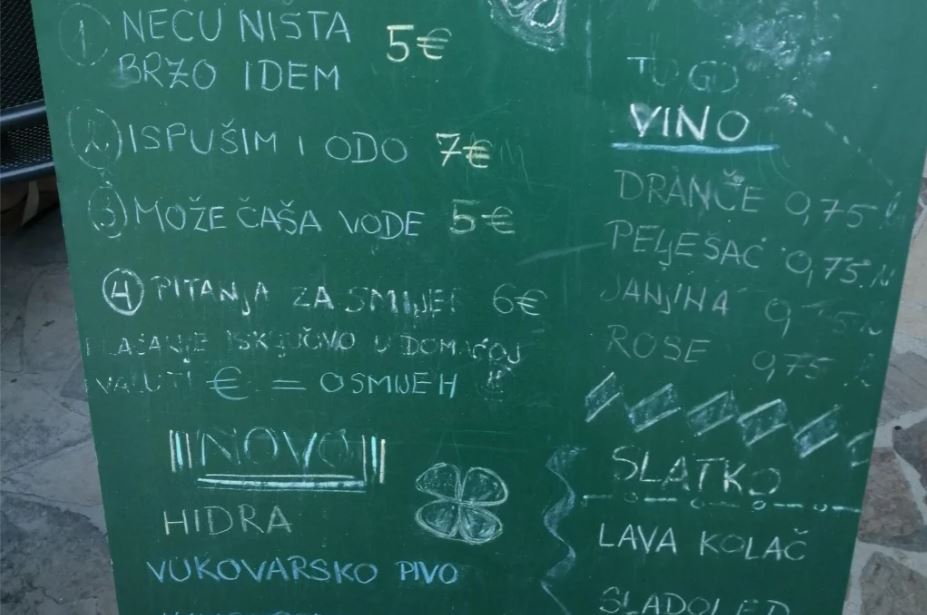 1 NEĆU NIŠTA 5€
BRZO IDEM
2 ISPUŠIM I ODO 7€
3 MOŽE ČAŠA VODE 5€
4 PITANJA ZA SMIJEH 6€
PLAĆANJE ISKLJUČIVO U DOMAĆOJ
VALUTI € = OSMIJEH
NOVO
HIDRA
VUKOVARSKO PIVO
TO GO
VINO
DRANČE 0,75
PELJEŠAC 0,75
JANJINA
ROSE 0,75
SLATKO
LAVA KOLAČ
SLADOLED